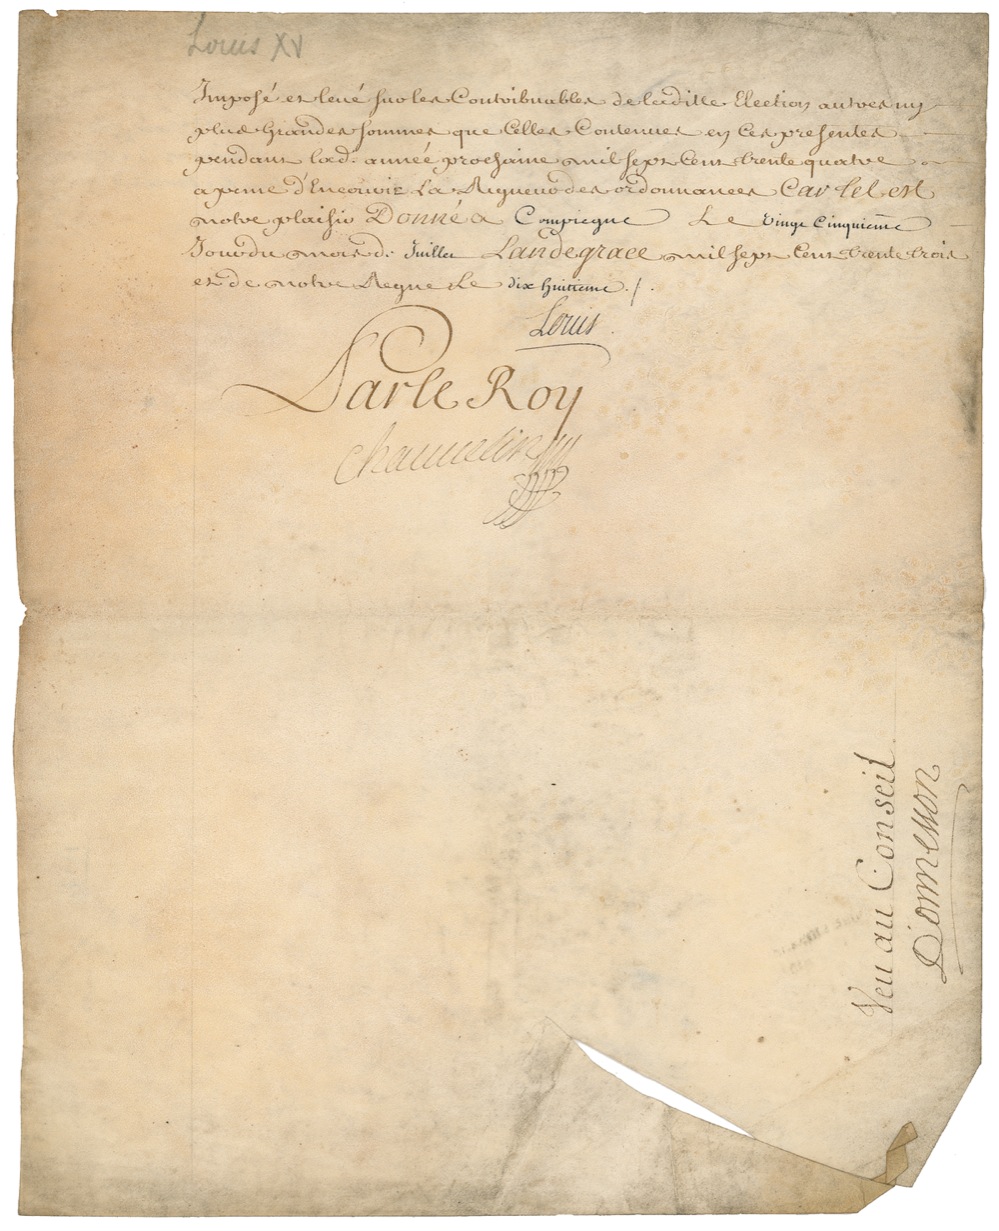 Louis XV
Imposé et levé sur les Contribuables de laditte Election autres ny
plus Grandes sommes que Celles Contenues en ces presentes
pendant lad. année prochaine mil sept Cent trente quatre
a peine d'Encourir La Rigueur des ordonnances Car tel est
notre plaisir Donné a Compiegne Le Vingt Cinquieme
Jour du mois de Juillet Lan de grace mil sept Cent trente trois
et de notre Regne Le dix huitieme ./.
Louis
Par le Roy
Chauvelin
Veu au Conseil
D'ormesson